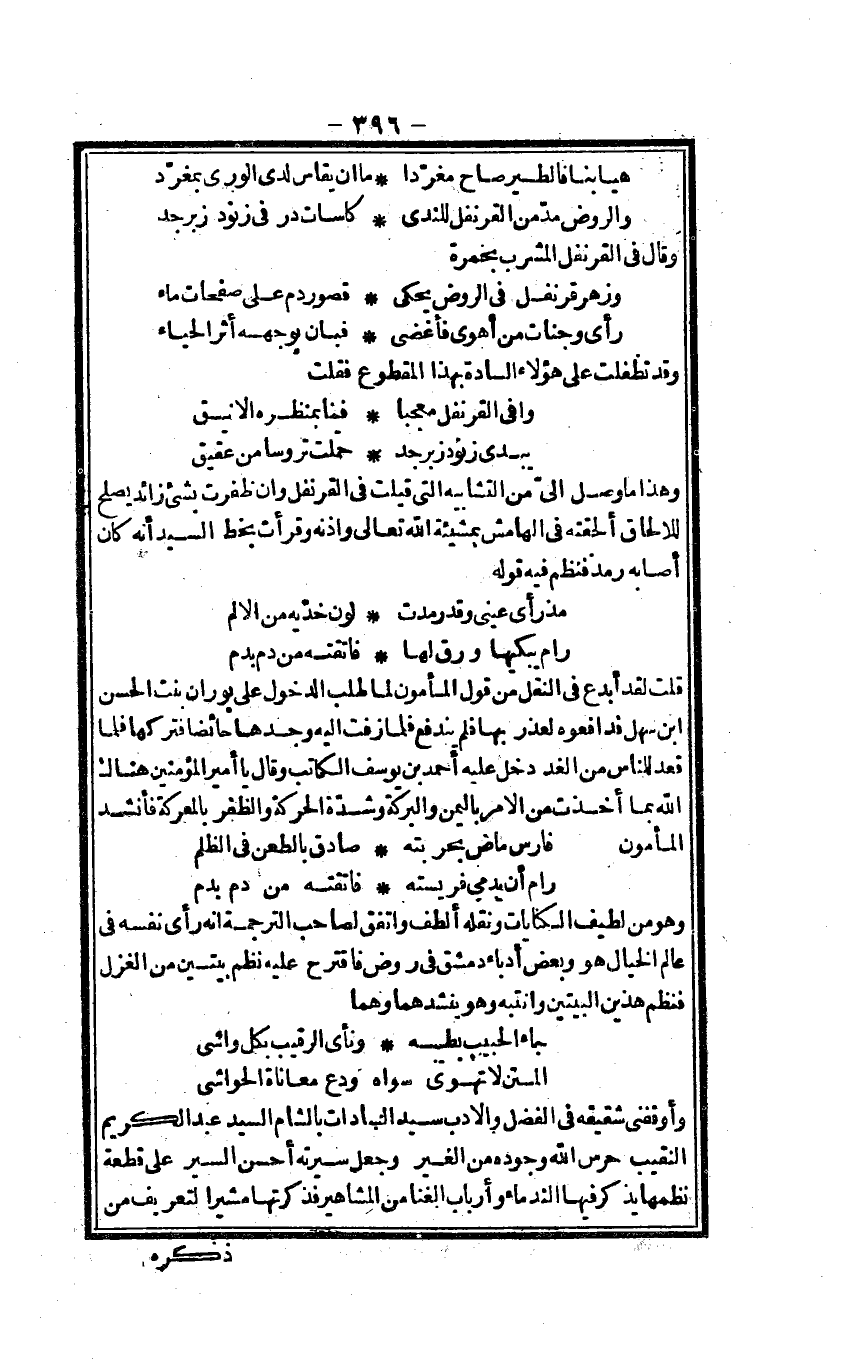 - ٣٩٦ -
هيا بنا فالطير صاح مغردا * ما ان يقاس لدى الورى بمغرد
والروض مدّ من القرنفل للندى * كاسات در فى زنود زبرجد
وقال فى القرنفل المشرب بخمرة
وزهر قرنفل فى الروض يحكى * قصور دم على صفحات ماء
رأى وجنات من أهوى فأغضى * فبان بوجهه أثر الحياء
وقد تطفلت على هؤلاء السادة بهذا المقطوع فقلت
وافى القرنفل معجبا * فننا بمنظره الانيق
يبدى زنود زبرجد * حملت تروسا من عقيق
وهذا ما وصل الىّ من التشابيه التى قيلت فى القرنفل وان ظفرت بشئ زائد يصلح
للالحاق ألحقته فى الهامش بمشيئة الله تعالى واذنه وقرأت بخط السيد أنه كان
أصابه رمد فنظم فيه قوله
مذ رأى عينى وقد رمدت * لون خدّيه من الالم
رام يبكيها ورق لها * فاتقته من دم بدم
قلت لقد أبدع فى النقل من قول المأمون لما طلب الدخول على بوران بنت الحسن
ابن سهل فدافعوه لعذر بها فلم يندفع فلما زفت اليه وجدها حائضا فتركها فلما
قعد للناس من الغد دخل عليه أحمد بن يوسف الكاتب وقال يا أمير المؤمنين هناك
الله بما أخذت من الامر باليمن والبركة وشدّة الحركة والظفر بالمعركة فأنشد
المأمون فارس ماض بحربته * صادق بالطعن فى الظلم
رام أن يدمي فريسته * فاتقته من دم بدم
وهو من لطيف الكنايات ونقله ألطف واتفق لصاحب الترجمة انه رأى نفسه فى
عالم الخيال هو وبعض أدباء دمشق فى روض فاقترح عليه نظم بيتين من الغزل
فنظم هذين البيتين وانتبه وهو ينشدهما وهما
جاء الحبيب بطيبه * ونأى الرقيب بكل واشى
المتن لا تهوى سواه ودع معاناة الحواشى
وأوقفنى شقيقه فى الفضل والادب سيد السادات بالشام السيد عبد الكريم
النقيب حرس الله وجوده من الغير وجعل سيرته أحسن السير على قطعة
نظمها يذكر فيها الندماء وأرباب الغنا من المشاهير فذكرتها مشيرا لتعريف من
ذكره